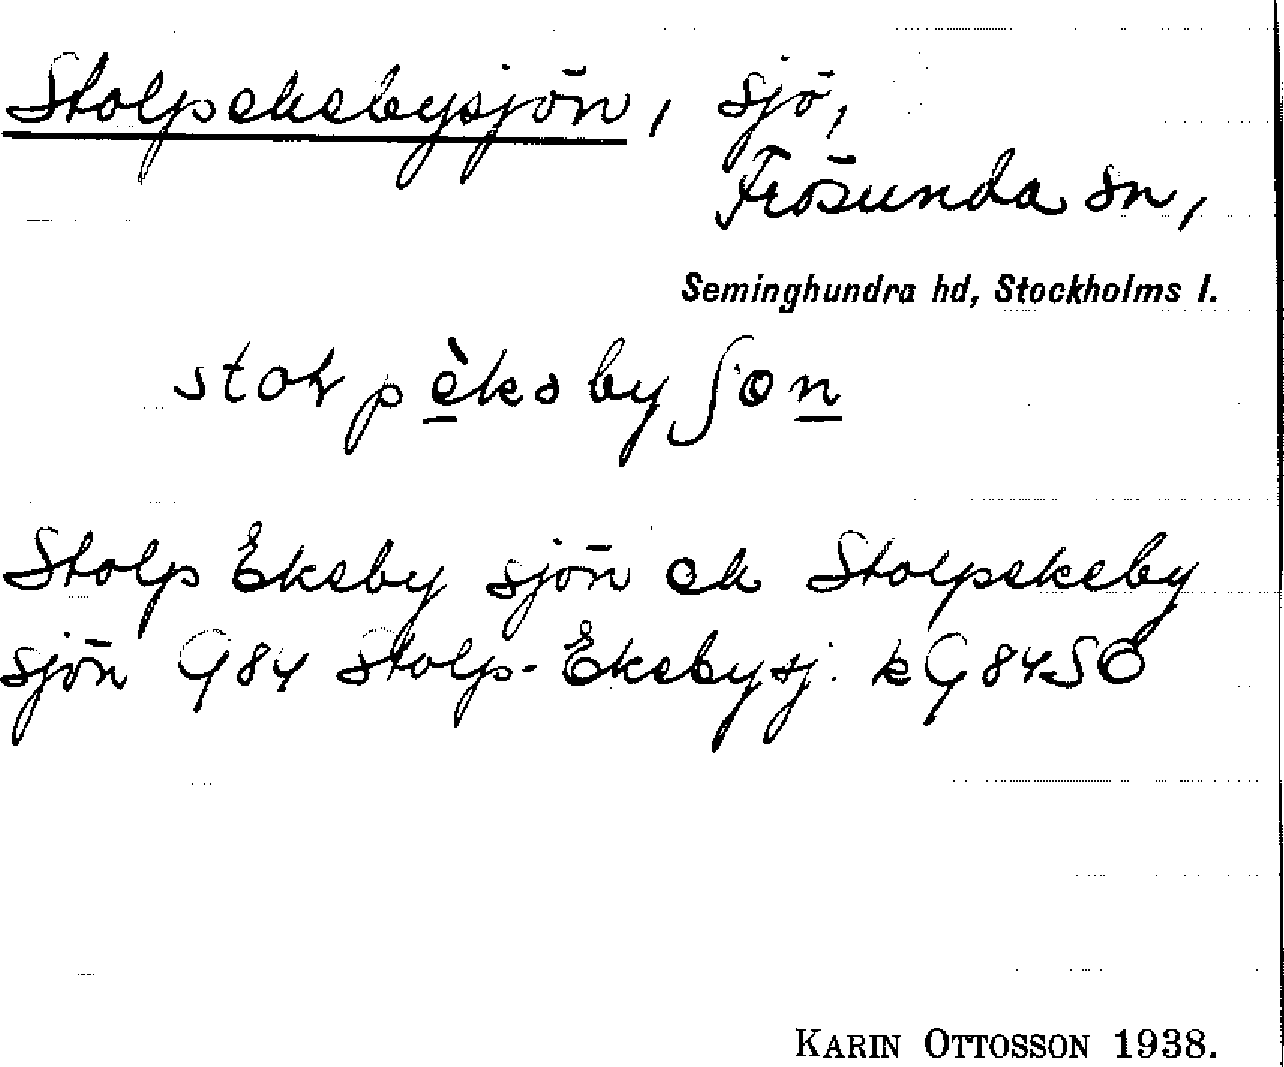 Stolpeksbysjön, sjö,
Frösunda sn,
Seminghundra hd, Stockholms l.
stoɫpèksbyʃon
Stolp Eksby sjön ek Stolpeksby
sjön G84 Stolp-Eksbysj. kG84SÖ
KARIN OTTOSSON 1938.